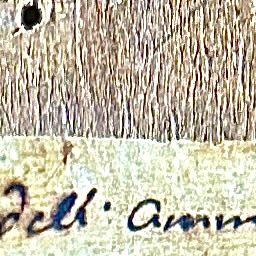 dell' Amm